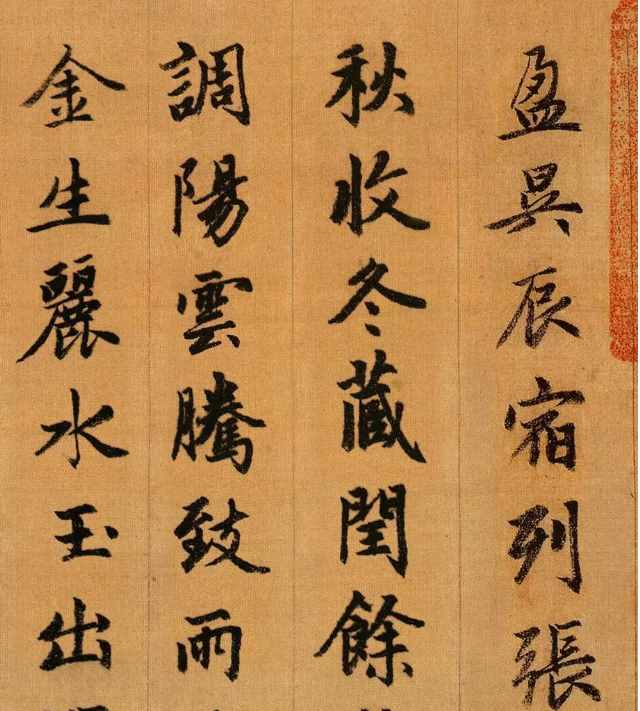 盈昃辰宿列張
秋收冬藏閏餘
調陽雲騰致雨
金生麗水玉出